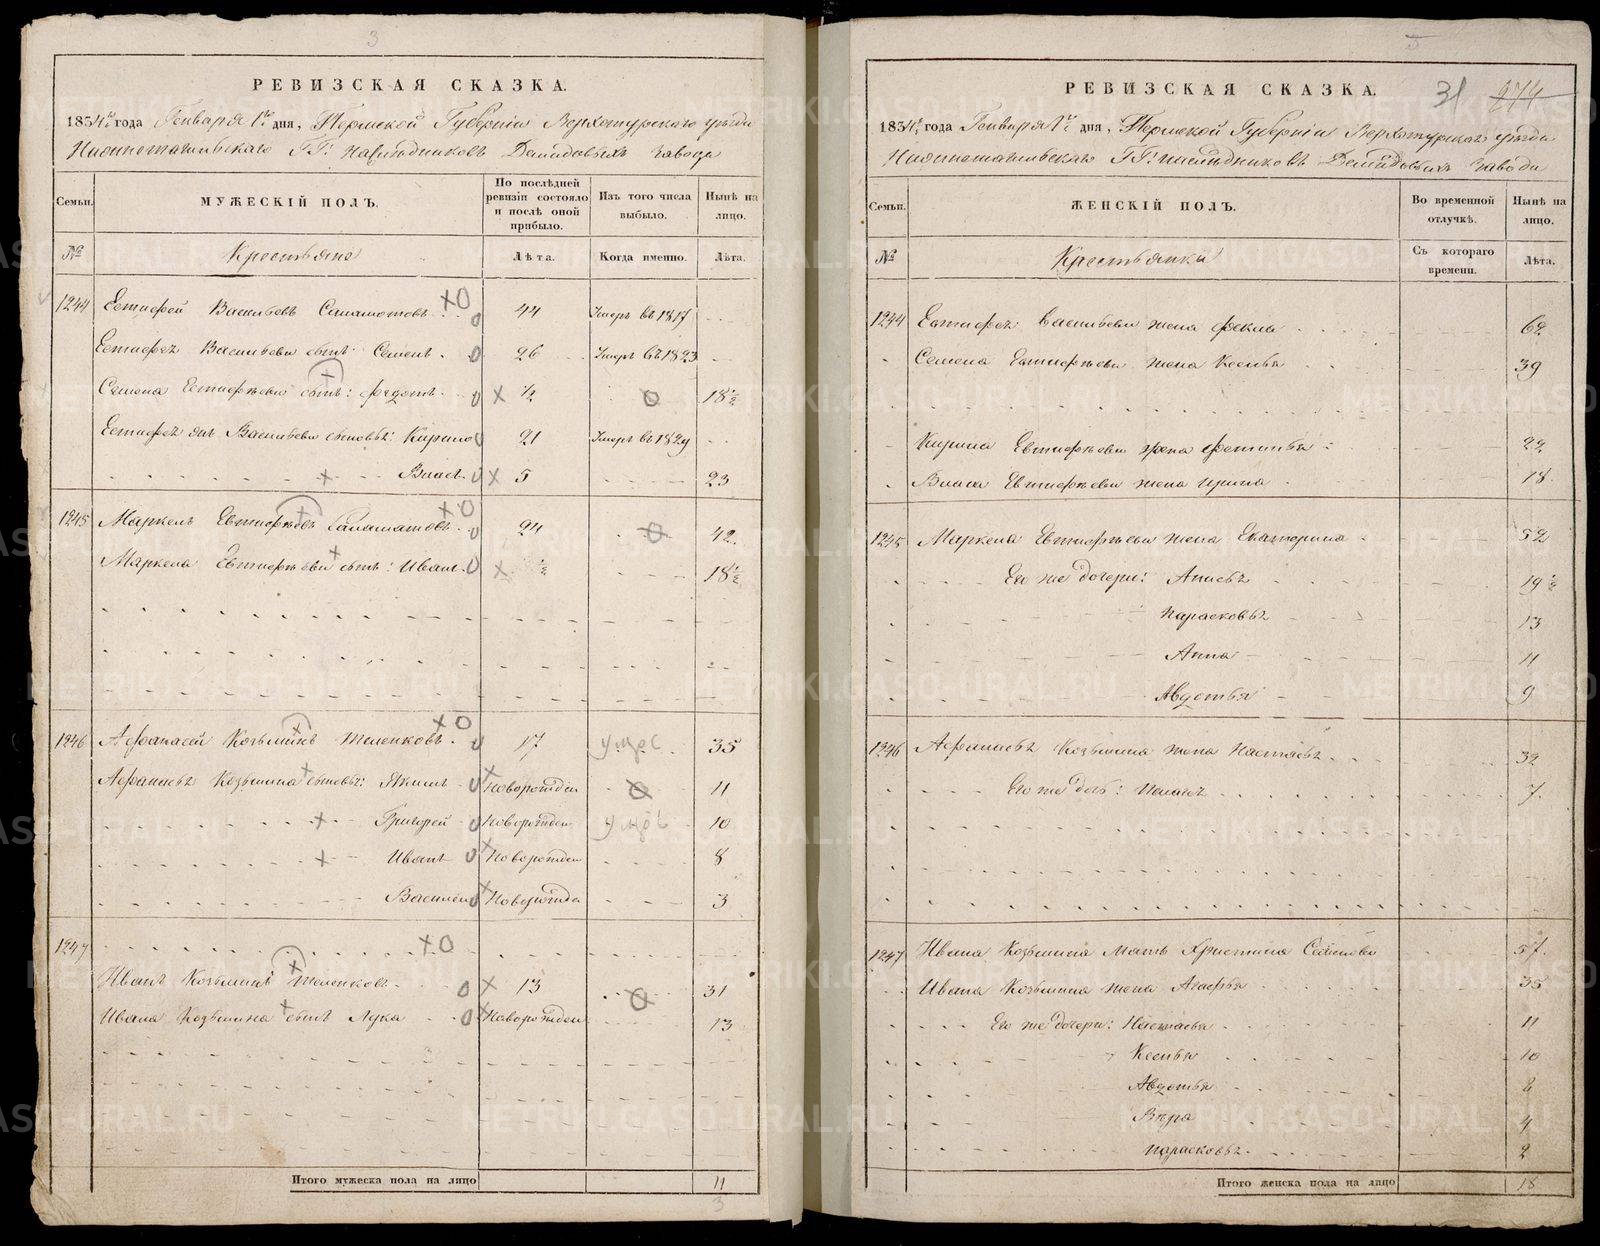 3
РЕВИЗСКАЯ СКАЗКА.
1834го года Генваря 1го дня, Пермской Губерніи Верхотурскаго уезда
Нижнетагильскаго ГГ: Наследниковъ Демидовыхъ завода
Семьи. МУЖЕСКІЙ ПОЛЪ. По послѣдней ревизіи состояло и послѣ оной прибыло. Изъ того числа выбыло. Нынѣ на лицо.
№ Крестьяне Лѣта. Когда именно. Лѣта.
1244 Евтифей Васильевъ 44 Умеръ въ 1817
Евтифея Васильева сынъ Семенъ 26 Умеръ въ 1823
Семена Евтифѣева сынъ: Федотъ ½ 18½
Евтифея же Васильева сыновья: Кирило 21 Умеръ въ 1829
Власъ 5 23
1245 Маркелъ Евтифѣевъ 24 42
Маркела Евтифѣева сынъ: Иванъ ½ 18½
1246 Афанасей Козьминъ 17 умре 35
Афанасья Козьмина сыновья: Якимъ Новорожден 11
Григорей Новорожден умръ 10
Иванъ Новорожден 8
Василей Новорожден 3
1247
Иванъ Козьминъ 13 31
Ивана Козьмина сынъ Лука Новорожден 13
Итого мужеска пола на лицо 11
3
31 274
РЕВИЗСКАЯ СКАЗКА.
1834го года Генваря 1го дня, Пермской Губерніи Верхотурскаго уезда
Нижнетагильскаго ГГ: наследниковъ Демидовыхъ завода
Семьи. ЖЕНСКІЙ ПОЛЪ. Во временной отлучкѣ. Нынѣ на лицо.
№ Крестьянки Съ котораго времени. Лѣта.
1244 Евтифея Васильева жена Фекла 62
Семена Евтифѣева жена Ксенья 39
Кирила Евтифѣева жена Фетинья 22
Власа Евтифѣева жена Ирина 18
1245 Маркела Евтифѣева жена Екатерина 52
Его же дочери: Анисья 19½
Парасковья 13
Анна 11
Авдотья 9
1246 Афанасья Козьмина жена Настасья 32
Его же дочь: Пелагея 7
1247 Ивана Козьмина мать Христина 57
Ивана Козьмина жена Агафья 35
Его же дочери: Настасья 11
Ксенья 10
Авдотья
Вѣра 4
Парасковья 2
Итого женска пола на лицо 18
METRIKI.GASO-URAL.RU